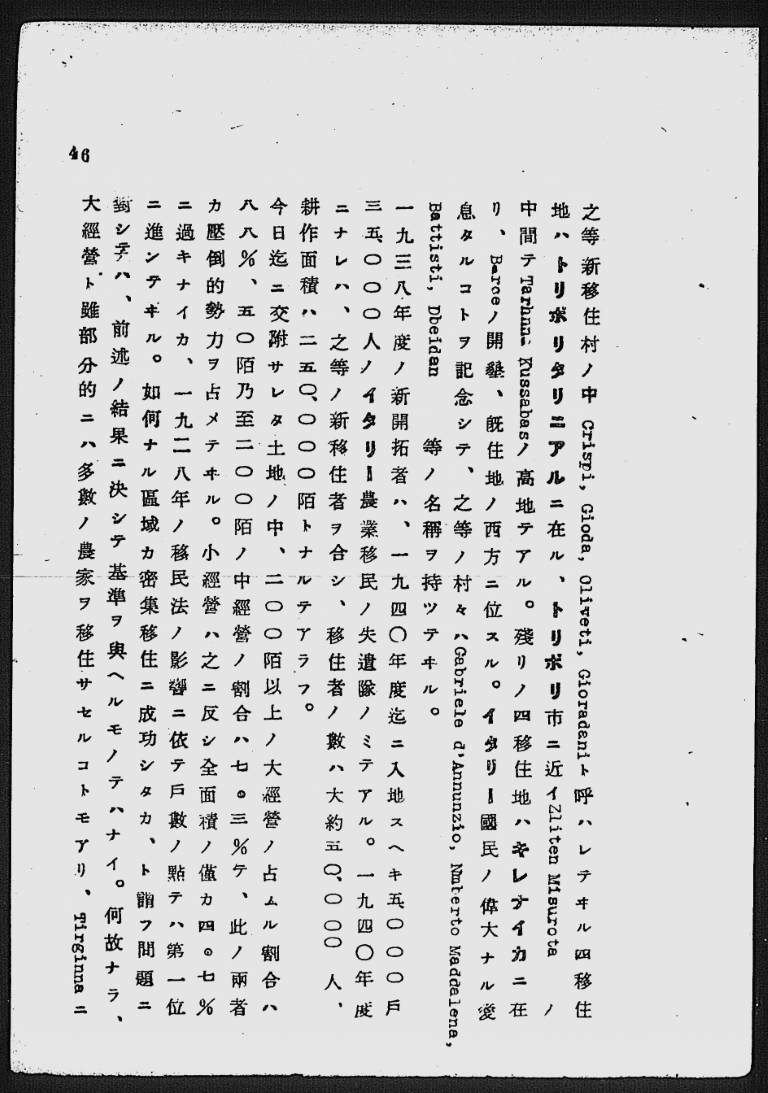 46
之等新移住村ノ中 Crispi, Gioda, Oliveti, Gioradaniト呼ハレテヰル四移住
地ハトリポリタリニアルニ在ル、トリポリ市ニ近イZliten Misurota ノ
中間テTarhuna Kussabasノ高地テアル。殘リノ四移住地ハキレナイカニ在
リ、Barceノ開墾、既住地ノ西方ニ位スル。イタリー國民ノ偉大ナル愛
息タルコトヲ記念シテ、之等ノ村々ハGabriele d'Annunzio, Nmberto Maddalena,
Battisti, Dbeidan 等ノ名稱ヲ持ツテヰル。
一九三八年度ノ新開拓者ハ、一九四〇年度迄ニ入地スヘキ五〇〇〇戶
三五、〇〇〇人ノイタリー農業移民ノ先遣隊ノミテアル。一九四〇年度
ニナレハ、之等ノ新移住者ヲ合シ、移住者ノ數ハ大約五〇、〇〇〇人、
耕作面積ハ二五〇、〇〇〇陌トナルテアラフ。
今日迄ニ交附サレタ土地ノ中、二〇〇陌以上ノ大經營ノ占ムル割合ハ
八八%、五〇陌乃至二〇〇陌ノ中經營ノ割合ハ七。三%テ、此ノ兩者
カ壓倒的勢力ヲ占メテヰル。小經營ハ之ニ反シ全面積ノ僅カ四。七%
ニ過キナイカ、一九二八年ノ移民法ノ影響ニ依テ戶數ノ點テハ第一位
ニ進ンテヰル。如何ナル區域カ密集移住ニ成功シタカ、ト謂フ問題ニ
對シテハ、前述ノ結果ニ決シテ基準ヲ與ヘルモノテハナイ。何故ナラ、
大經營ト雖部分的ニハ多數ノ農家ヲ移住サセルコトモアリ、Tirginnaニ